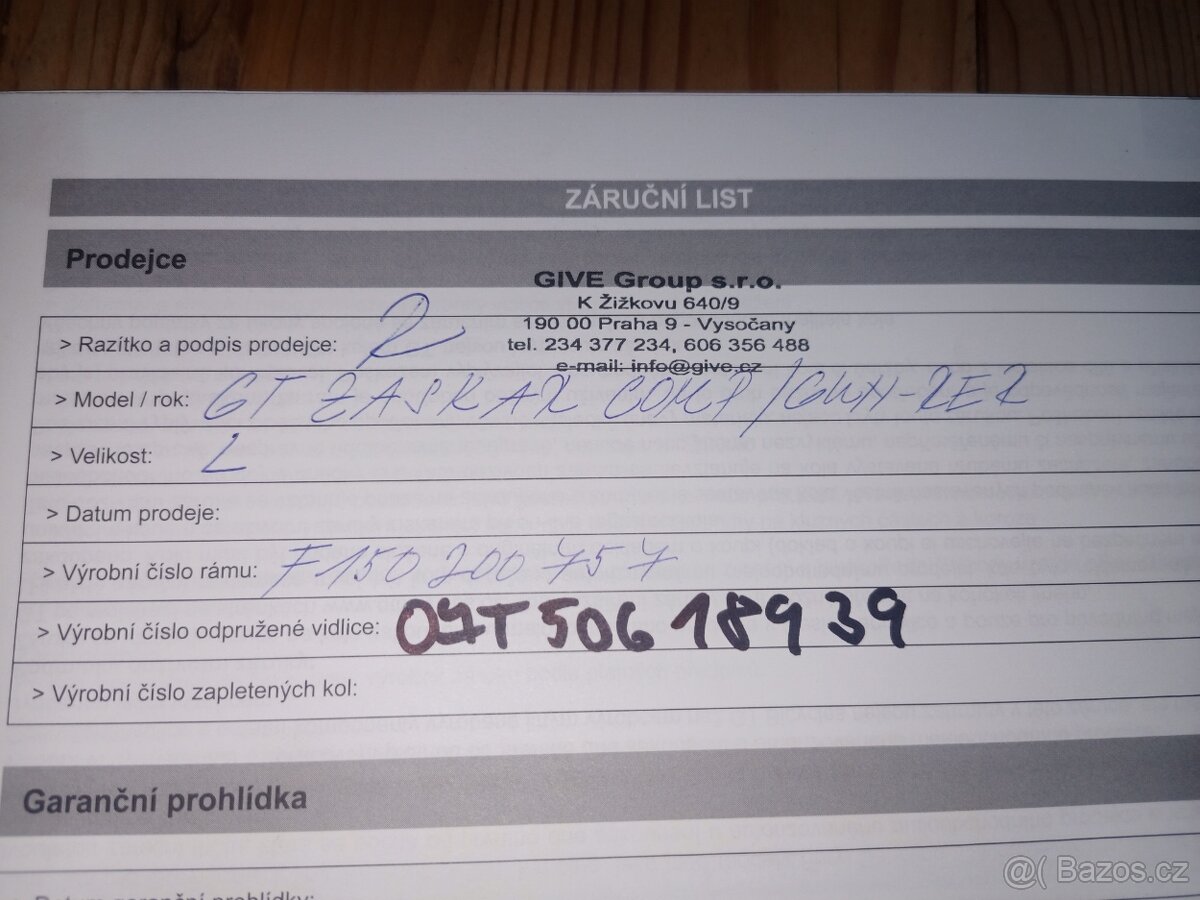 ZÁRUČNÍ LIST
Prodejce
GIVE Group s.r.o.
K Žižkovu 640/9
190 00 Praha 9 - Vysočany
tel. 234 377 234, 606 356 488
e-mail: info@give.cz
> Razítko a podpis prodejce:
> Model / rok: GT ZASKAR COMP / GUN-RER
> Velikost: L
> Datum prodeje:
> Výrobní číslo rámu: F150200757
> Výrobní číslo odpružené vidlice: 07T50618939
> Výrobní číslo zapletených kol:
Garanční prohlídka
> Datum garanční prohlídky:
@( Bazos.cz